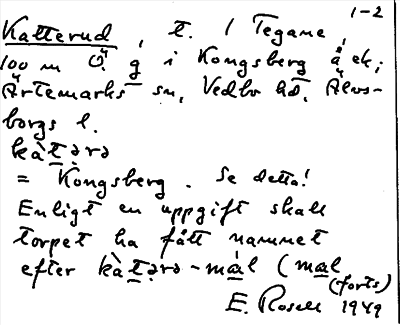 1-2
Katterud, t. 1 Tegane,
100 m Ö. g i Kongsberg å ek;
Ärtemarks sn, Vedbo hd. Älvs-
borgs l.
kàt̲ərə
= Kongsberg. Se detta!
Enligt en uppgift skall
torpet ha fått namnet
efter kàt̲ərə-mȧl (mal
(forts)
E. Rosell 1949